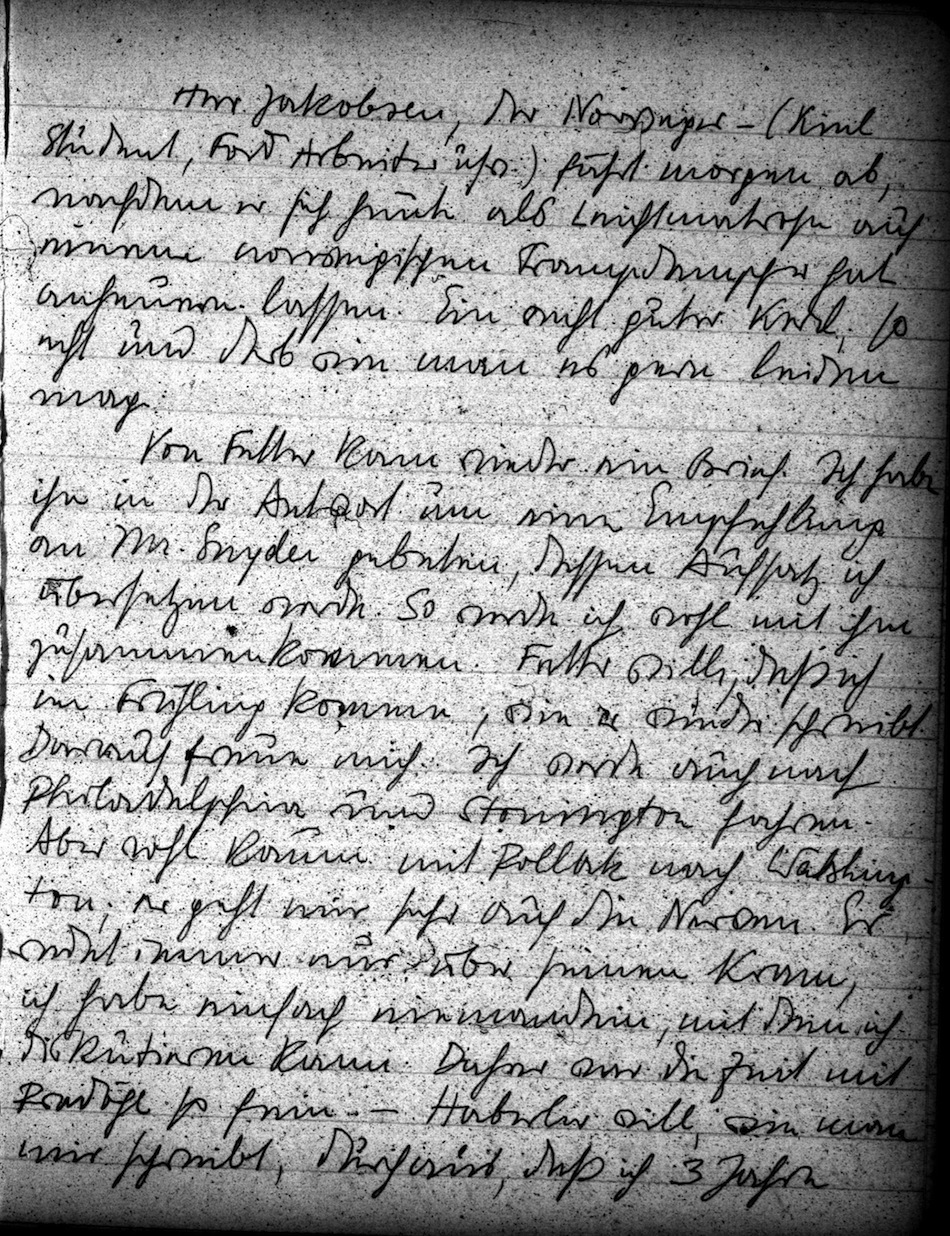 Herr Jakobsen, der Norweger – (Kiel
Student, Ford Arbeiter usw.) fährt morgen ab,
nachdem er sich heute als Leichtmatrose auf
einem norwegischen Trampdampfer hat
anheuern lassen. Ein recht guter Kerl, so
echt und derb wie man es gern leiden
mag.
Von Fetter kam wieder ein Brief. Ich habe
ihn in der Antwort um eine Empfehlung
an Mr. Snyder gebeten, dessen Aufsatz ich
übersetzen werde. So werde ich wohl mit ihm
zusammenkommen. Fetter will, daß ich
im Frühling komme, wie er wieder schreibt.
Darauf freue mich. Ich werde auch nach
Philadelphia und Stonington fahren.
Aber wohl kaum mit Pollak nach Washing-
ton; er geht mir sehr auf die Nerven. Er
redet immer nur über seinen Kram,
ich habe einfach niemanden, mit dem ich
diskutieren kann. Daher war die Zeit mit
Predöhl so fein. – Haberler will, wie man
mir schreibt, durchaus, daß ich 3 Jahre